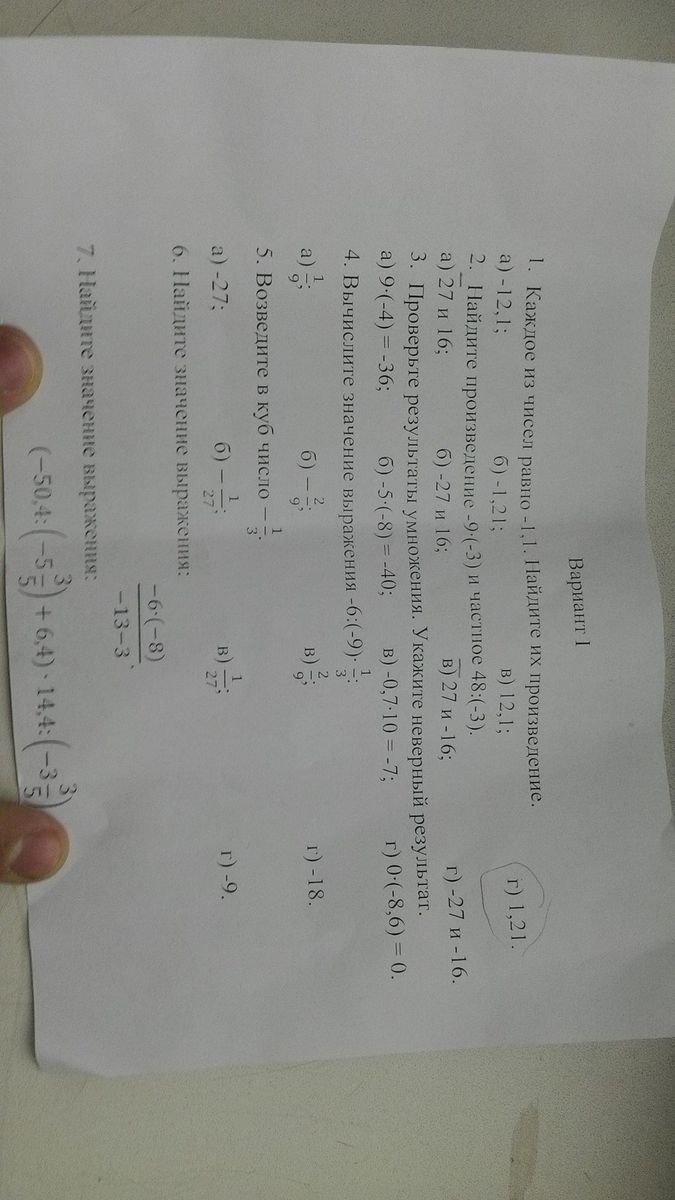 Вариант I
1. Каждое из чисел равно -1,1. Найдите их произведение.
а) -12,1; б) -1,21; в) 12,1; г) 1,21.
2. Найдите произведение -9·(-3) и частное 48:(-3).
а) 27 и 16; б) -27 и 16; в) 27 и -16; г) -27 и -16.
3. Проверьте результаты умножения. Укажите неверный результат.
а) 9·(-4) = -36; б) -5·(-8) = -40; в) -0,7·10 = -7; г) 0·(-8,6) = 0.
4. Вычислите значение выражения -6:(-9)·1/3:
а) 1/9; б) −2/9; в) 2/9; г) -18.
5. Возведите в куб число −1/3:
а) -27; б) −1/27; в) 1/27; г) -9.
6. Найдите значение выражения:
−6·(−8)
−13−3
7. Найдите значение выражения:
(−50,4:(−5 3/5)+6,4)·14,4:(−3 3/5)